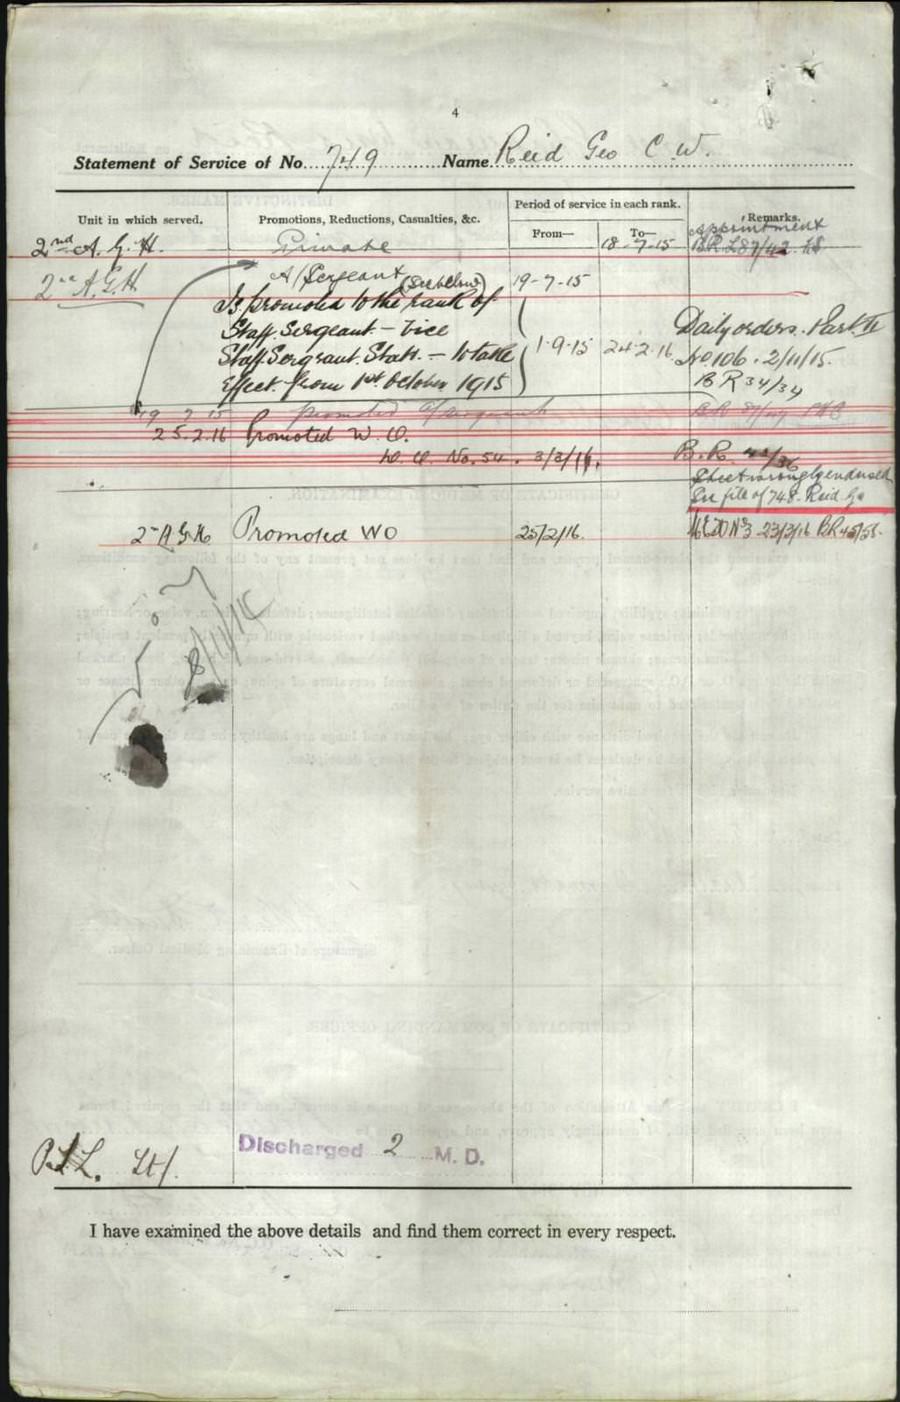 4
Statement of Service of No. 749 Name Reid Geo C. W.
Unit in which served. Promotions, Reductions, Casualties, &c. Period of service in each rank. Remarks.
From— To—
Appointment
2nd A. G. H. Private 18-7-15 B.R. L89/42
2nd A.G.H. A/Sergeant (See below) 19-7-15
Is promoted to the rank of
Staff Sergeant - Vice Daily orders. Part II
Staff Sergeant Stats. - to take 1-9-15 24-2-16 No. 106. 2/11/15.
Effect from 1st October 1915 B R 34/34
19 7 15 promoted A/Sergeant
25.2.16 Promoted W. O.
W. O. No. 54. 3/3/16. B. R.
Sheet wrongly endorsed
See file of 748. Reid. Ge
2nd AGH Promoted WO 25/2/16. 23/3/16 BR
Discharged 2 M. D.
Lt.
I have examined the above details and find them correct in every respect.